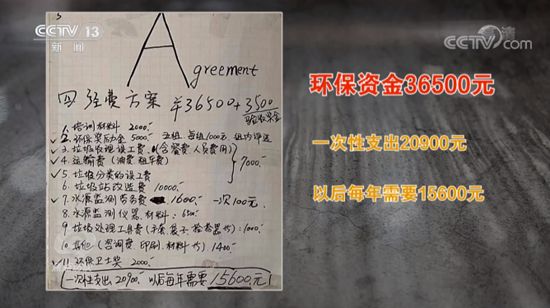 CCTV 13
新闻
CCTV.com
Agreement
四 经费方案 ¥36500+3500
验收奖金
1. 培训材料 2000.-
✓ 2. 环保奖励金 5000.- 五组 每组1000元 组内评选
✓ 3. 垃圾处理误工费 (含餐费 人员费用)
✓ 4. 运输费 (油费 租车费)
7000.-
✓ 5. 垃圾分类的误工费
6. 垃圾站改造费 10000.-
✓ 7. 水源监测劳务费 1600.- 一次100元
8. 水源监测仪器、材料: 650.-
9. 垃圾处理工具费 (手套 袋子 检卷器等): 1000.-
10 其他 (咨询费 印刷、材料等) 1400.-
✓ 11. 环保卫士奖 2000.-
一次性支出20900.- 以后每年需要 15600元
环保资金36500元
一次性支出20900元
以后每年需要15600元